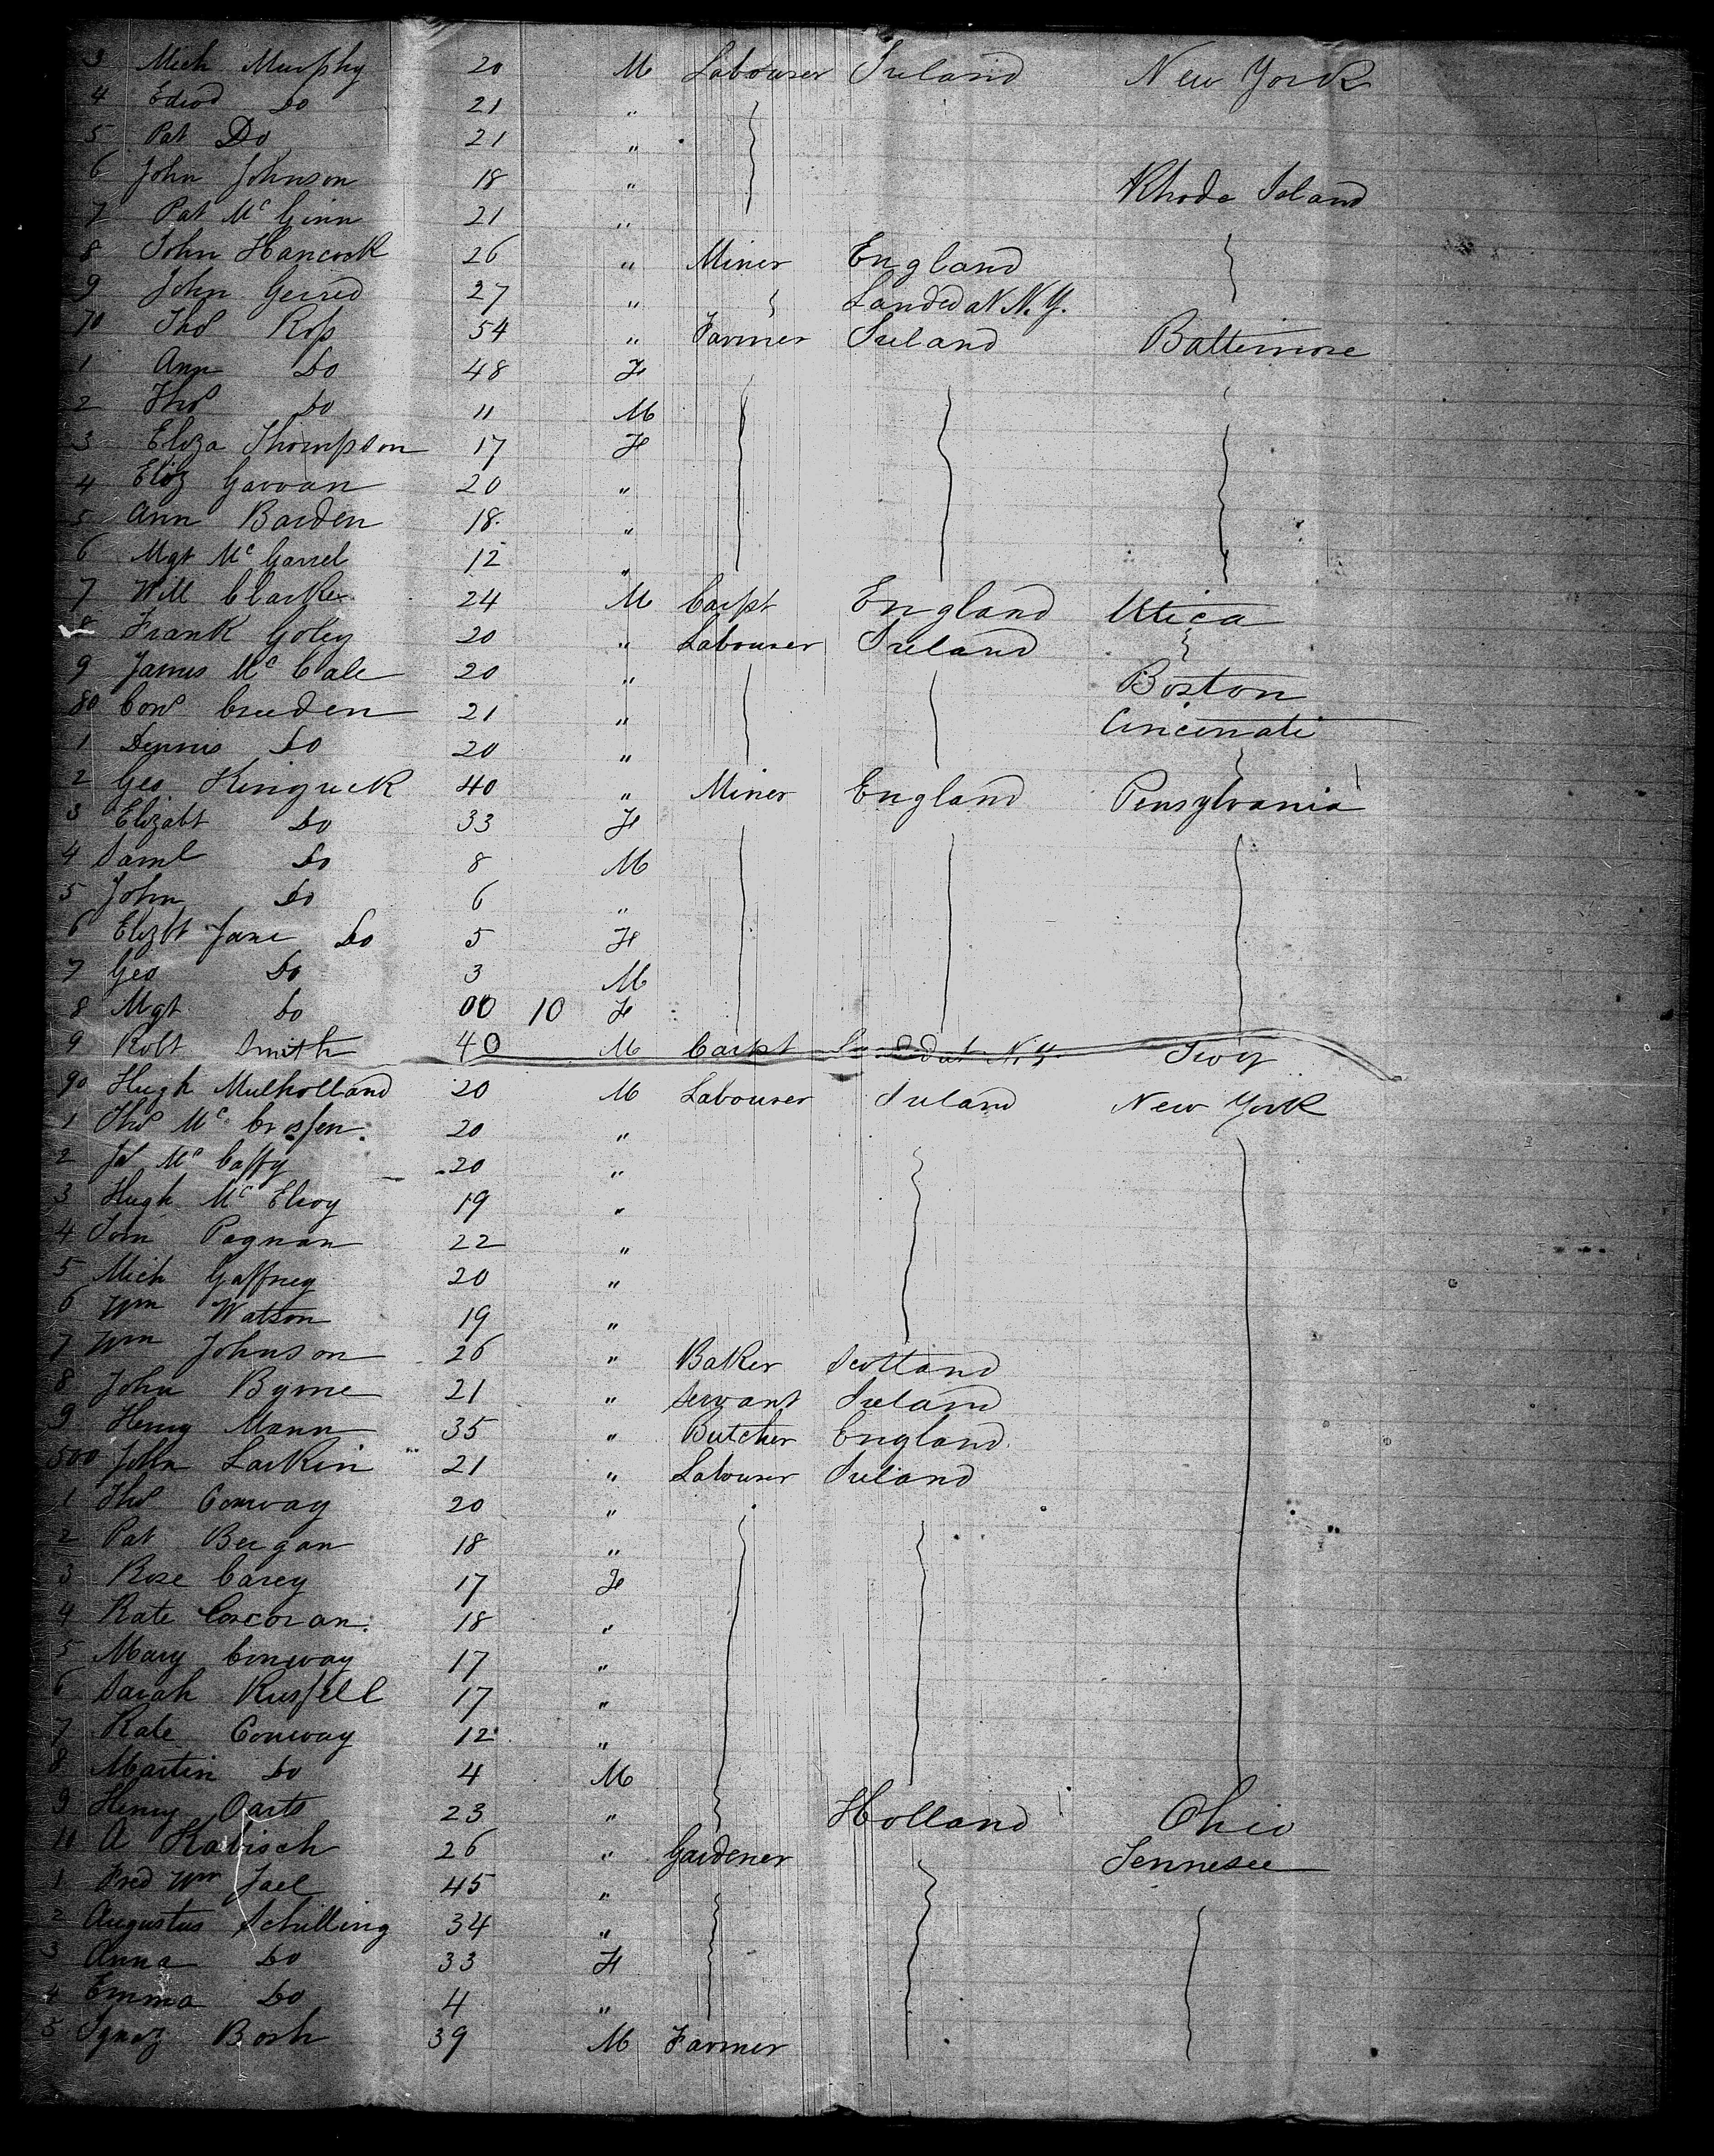 3 Mich Murphy 20 M Labourer Ireland New York
4 Edwd Do 21 "
5 Pat Do 21 "
6 John Johnson 18 " Rhode Island
7 Pat McGinn 21 "
8 John Hancock 26 " Miner England
9 John Gerred 27 " Landed at N.Y.
70 Thos Ross 54 " Farmer Ireland Baltimore
1 Ann Do 48 F
2 Thos Do 11 M
3 Eliza Thompson 17 F
4 Eliz Gavvan 20 "
5 Ann Barden 18 "
6 Mgt McGarrel 12 "
7 Will Clarke 24 M Carpt England Utica
8 Frank Goley 20 " Labourer Ireland
9 James McCale 20 " Boston
80 Cons Creeden 21 " Cincinati
1 Dennis Do 20 "
2 Geo 40 " Miner England Pensylvania
3 Elizabt Do 33 F
4 Saml Do 8 M
5 John Do 6 "
6 Elizbt Jane Do 5 F
7 Geo Do 3 M
8 Mgt Do 00 10 F
9 Robt Smith 40 M Carpt Landed at N.Y. Troy
90 Hugh Mulholland 20 M Labourer Ireland New York
1 Thos McCrossen 20 "
2 Js McCaffy 20 "
3 Hugh McElroy 19 "
4 Tom Pagnan 22 "
5 Mich Gaffney 20 "
6 Wm Watson 19 "
7 Wm Johnson 26 " Baker Scotland
8 John Byrne 21 " Servant Ireland
9 Henry Mann 35 " Butcher England
500 John Larkin 21 " Labourer Ireland
1 Thos Conway 20 "
2 Pat Bergan 18 "
3 Rose Carey 17 F
4 Kate Corcoran 18 "
5 Mary Conway 17 "
6 Sarah Russell 17 "
7 Kate Conway 12 "
8 Martin Do 4 M
9 Henry Oarts 23 " Holland Ohio
10 A Kabisch 26 " Gardener Tennesee
1 Fred Wm Jael 45 "
2 Augustus Schilling 34 "
3 Anna Do 33 F
4 Emma Do 4 "
5 Ignaz Bosh 39 M Farmer